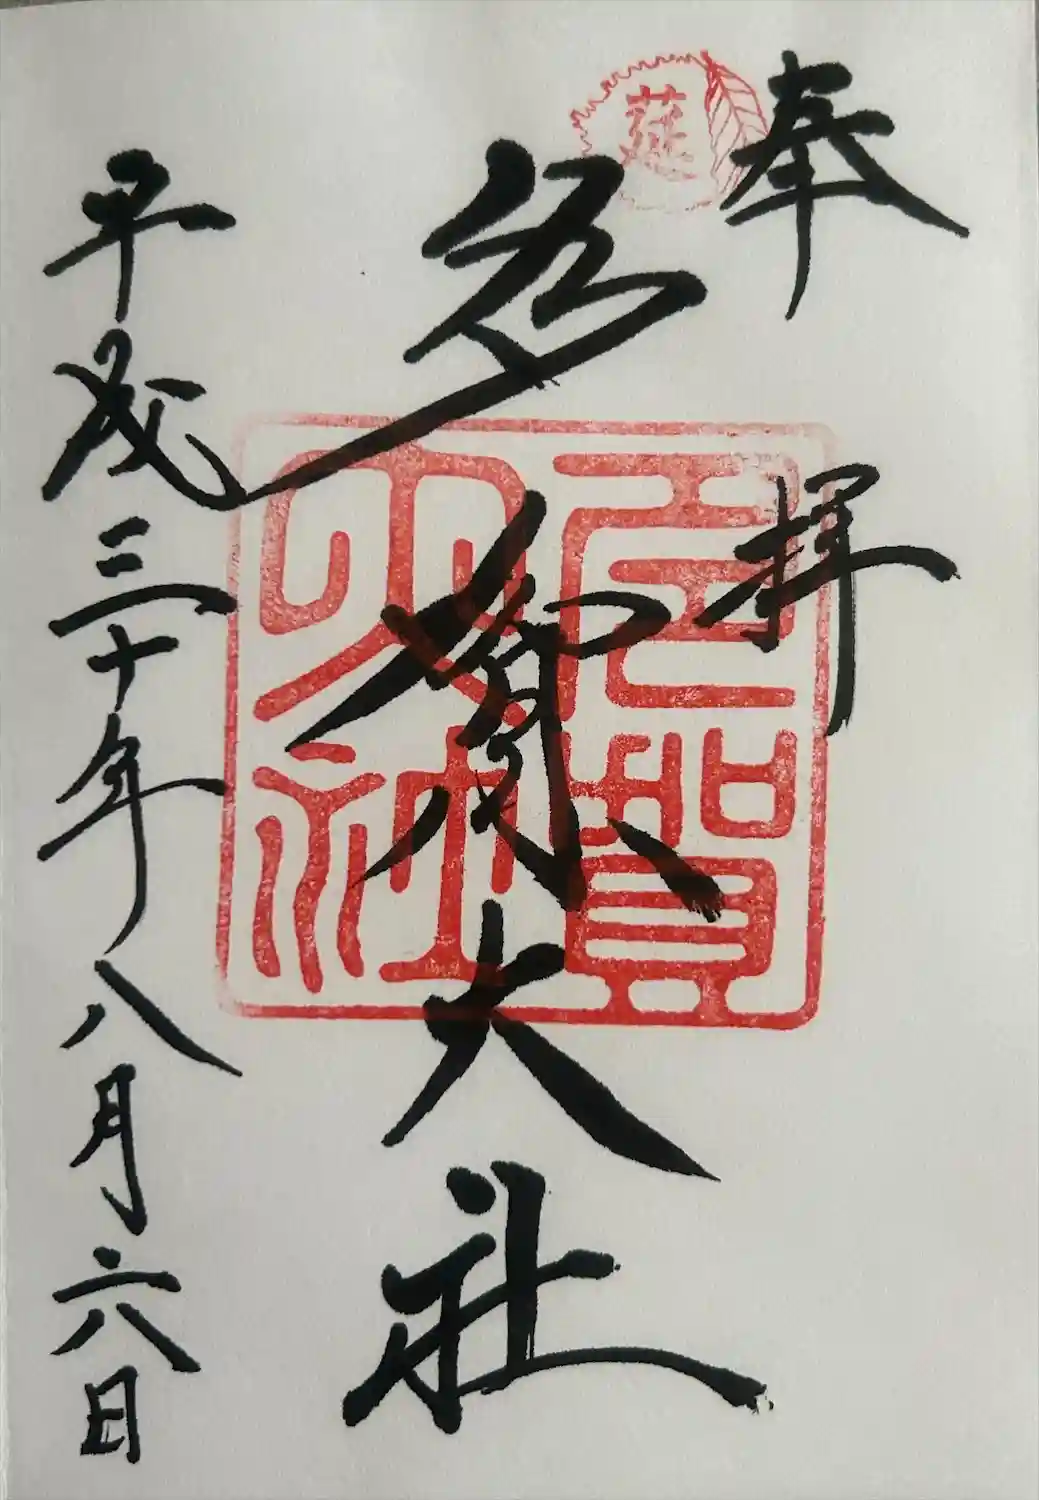 奉拝
莚
多賀大社
多賀大社
平成三十年八月六日